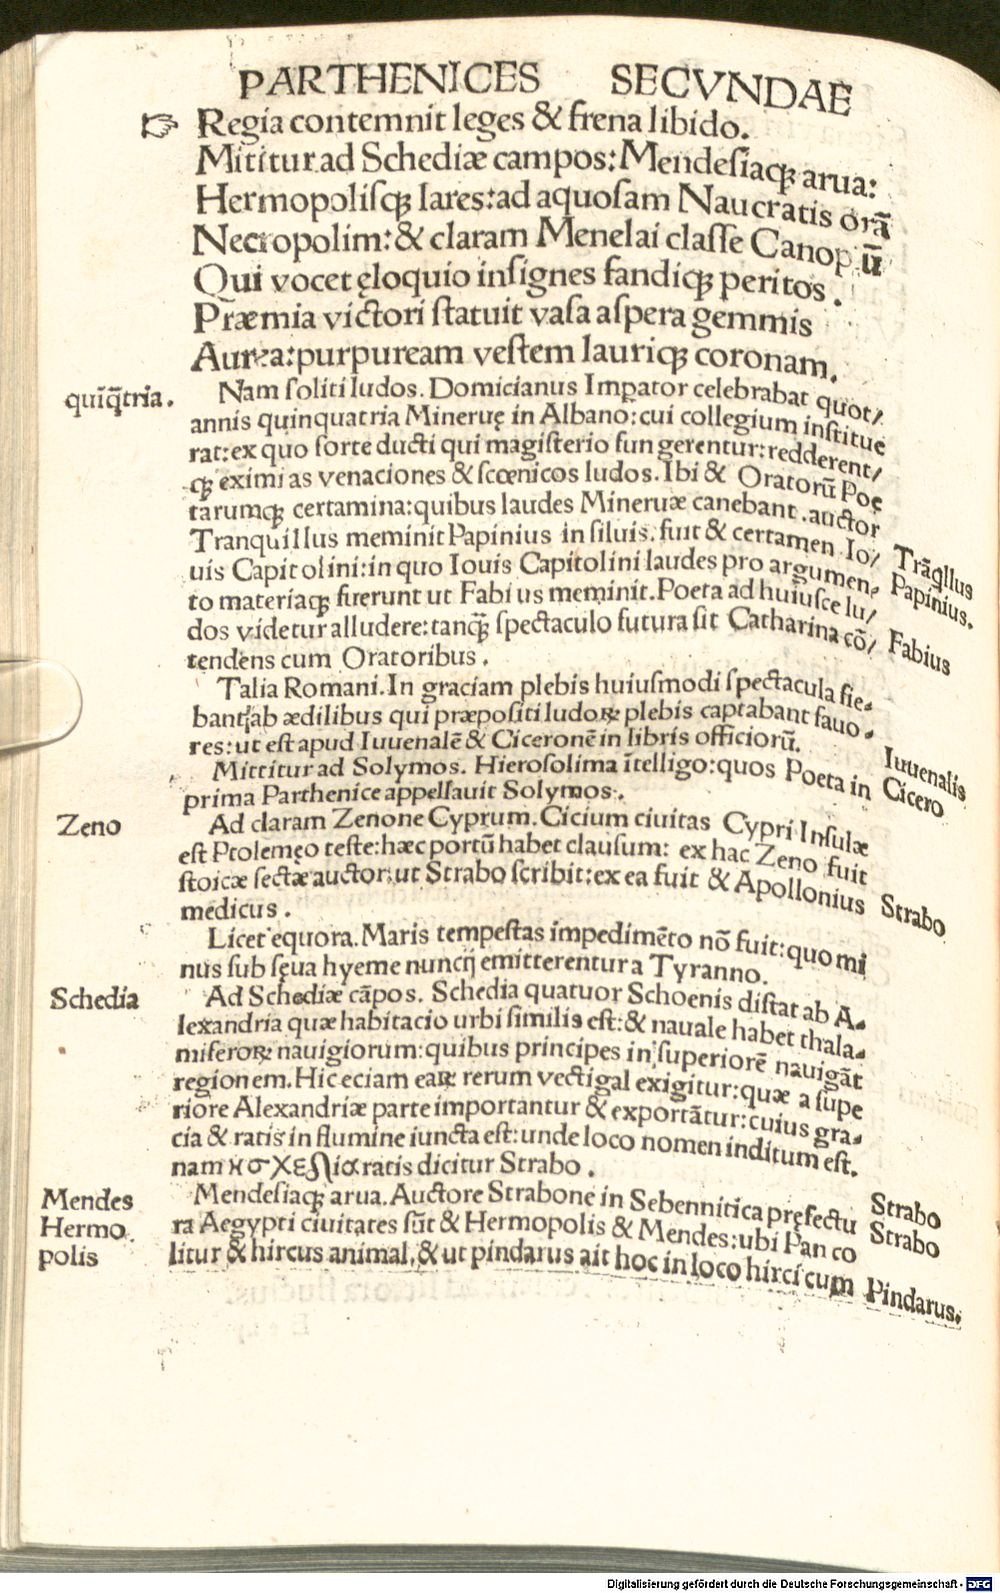 PARTHENICES SECVNDAE
☞ Regia contemnit leges & frena libido.
Mititur ad Schediæ campos: Mendesiaqꝫ arua:
Hermopolisqꝫ lares: ad aquosam Naucratis orā
Necropolim: & claram Menelai classe Canopū
Qui vocet ęloquio insignes fandiqꝫ peritos.
Præmia victori statuit vasa aspera gemmis
Aurea: purpuream vestem lauriqꝫ coronam.
quīq̄tria.
Nam soliti ludos. Domicianus Impator celebrabat quot/
annis quinquatria Mineruę in Albano: cui collegium institue
rat: ex quo sorte ducti qui magisterio fungerentur: redderent/
qꝫ eximias venaciones & scœnicos ludos. Ibi & Oratorū Poę
tarumqꝫ certamina: quibus laudes Mineruæ canebant. auctor
Tranquillus meminit Papinius in siluis. fuit & certamen Io/
Trāqllus
uis Capitolini: in quo Iouis Capitolini laudes pro argumen-
Papinius.
to materiaqꝫ fuerunt ut Fabius meminit. Poeta ad huiusce lu/
dos videtur alludere: tanqꝫ̄ spectaculo futura sit Catharina cō/
Fabius
tendens cum Oratoribus.
Talia Romani. In graciam plebis huiusmodi spectacula fie-
bant ab ædilibus qui præpositi ludoꝝ plebis captabant fauo-
res: ut est apud Iuuenalē & Ciceronē in libris officiorū.
Iuuenalis
Mittitur ad Solymos. Hierosolima ītelligo: quos Poeta in
Cicero
prima Parthenice appellauit Solymos.
Zeno
Ad claram Zenone Cyprum. Cicium ciuitas Cypri Insulæ
est Ptolemęo teste: hæc portū habet clausum: ex hac Zeno fuit
stoicæ sectæ auctor: ut Strabo scribit: ex ea fuit & Apollonius
Strabo
medicus.
Licet equora. Maris tempestas impedimēto nō fuit: quo mi
nus sub sęua hyeme nuncij emitterentur a Tyranno.
Schedia
Ad Schediæ cāpos. Schedia quatuor Schoenis distat ab A-
lexandria quæ habitacio urbi similis est: & nauale habet thala-
miferoꝝ nauigiorum: quibus principes in superiorē nauigāt
regionem. Hic eciam eaꝝ rerum vectigal exigitur: quæ a supe
riore Alexandriæ parte importantur & exportātur: cuius gra-
cia & ratis in flumine iuncta est: unde loco nomen inditum est.
nam ratis dicitur Strabo.
Mendes
Mendesiaqꝫ arua. Auctore Strabone in Sebennitica pręfectu
Strabo
Hermo
ra Aegypti ciuitates sūt & Hermopolis & Mendes: ubi Pan co
Strabo
polis
litur & hircus animal, & ut pindarus ait hoc in loco hirci cum
Pindarus.
Digitalisierung gefördert durch die Deutsche Forschungsgemeinschaft - DFG